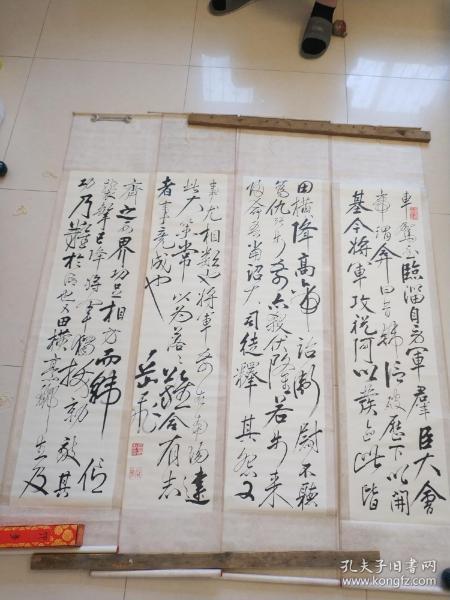 車駕至臨淄自勞軍羣臣大會
帝謂弇曰昔韓信破歷下以開
基今將軍攻祝阿以發迹此皆
田橫降高帝詔衛尉不聽
為仇張步前亦殺伏隆若步來
歸命吾當詔大司徒釋其怨又
事尤相類也將軍前在南陽建
此大策常以為落落難合有志
者事竟成也
岳飛
齊之西界功足相方而韓信
襲擊已降將軍獨拔勍敵其
功乃難於信也又田橫烹酈生及
孔夫子旧书网
www.kongfz.com